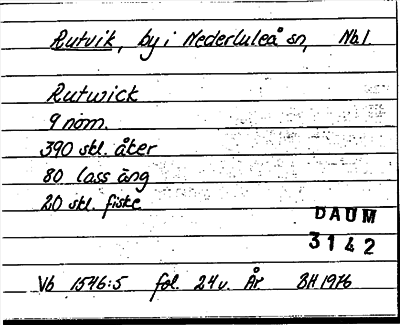 Rutvik, by i Nederluleå sn, Nb.
Rutwick
9 nom.
390 skl. åker
80 lass äng
20 skl. fiske
DAUM
3142
Vb 1546:5 fol. 24v. År BH 1976